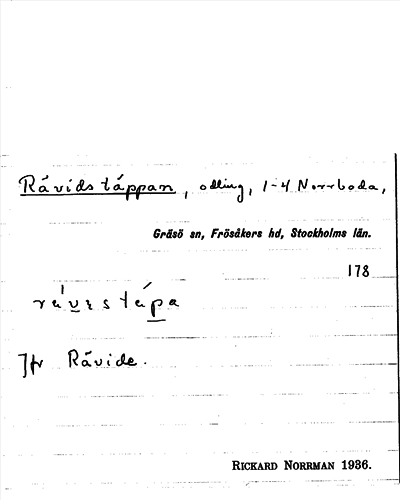 Råvids täppan, odling, 1-4 Norrboda,
Gräsö sn, Frösåkers hd, Stockholms län.
178
Jfr Råvide.
RICKARD NORRMAN 1936.